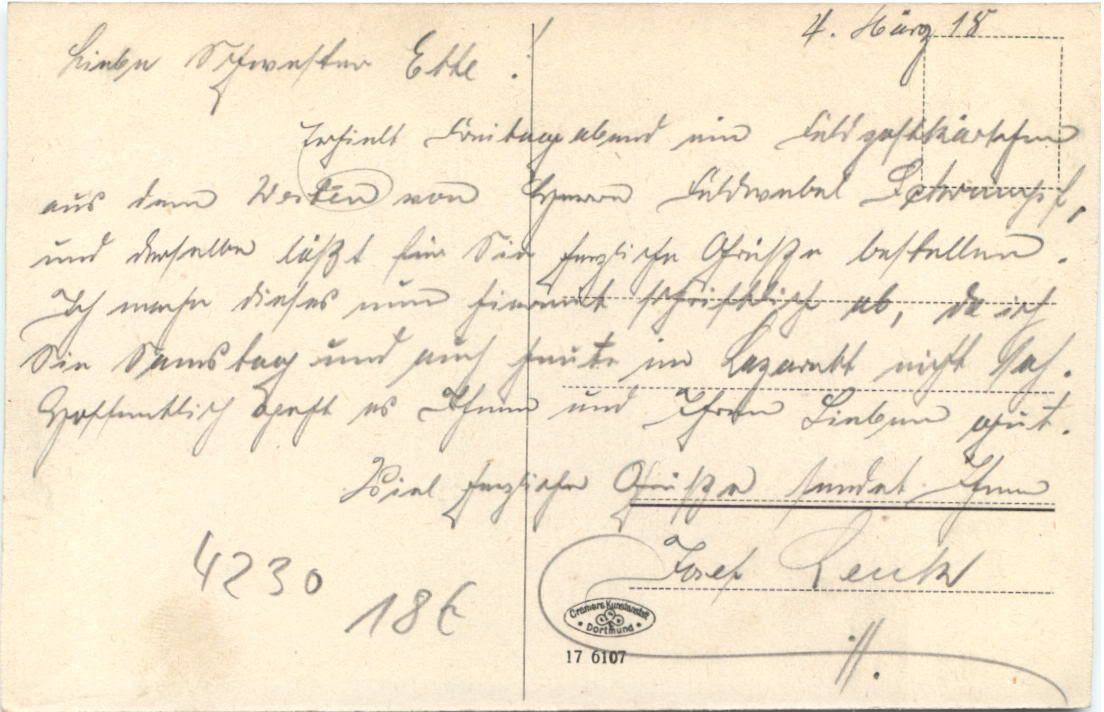 4. März 18
Liebe Schwester Ette!
Erhielt Freitag abend ein Feldpostkärtchen
aus dem Westen von Herrn Feldwebel Schrimpf,
und derselbe läßt für Sie herzliche Grüße bestellen.
Ich mache dieses nun hiermit schriftlich ab, da ich
Sie Samstag und auch heute im Lazarett nicht sah.
Hoffentlich geht es Ihnen und Ihren Lieben gut.
Viel herzliche Grüße sendet Ihnen
Josef
4230
18€
Cramers Kunstanstalt
Dortmund
17 6107